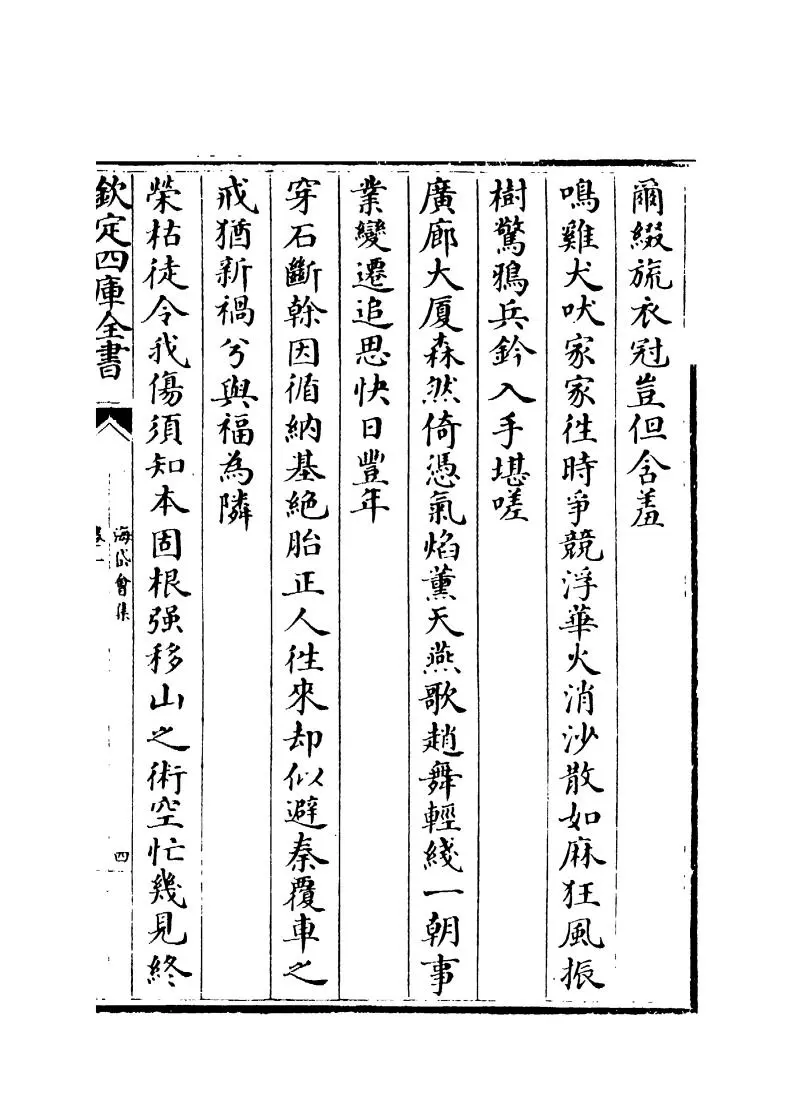 爾綴旒衣冠豈但含羞
鳴雞犬吠家家徃時爭競浮華火消沙散如麻狂風振
樹驚鴉兵鈐入手堪嗟
廣廊大厦森然倚憑氣焰薰天燕歌趙舞輕綫一朝事
業變遷追思快日豐年
穿石斷榦因循納基絶胎正人徃來却似避秦覆車之
戒猶新禍兮與福為隣
榮枯徒令我傷須知本固根强移山之術空忙幾見終
欽定四庫全書
海岱會集
卷一
四